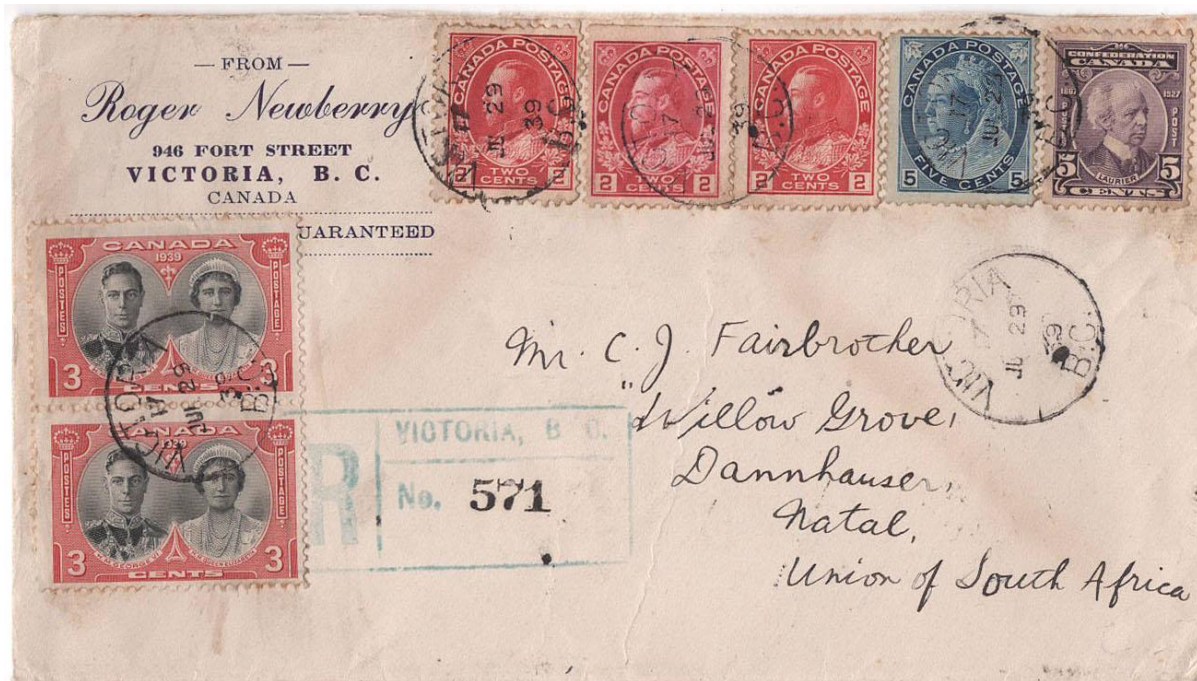 — FROM —
Roger Newberry
946 FORT STREET
VICTORIA, B. C.
CANADA
UARANTEED
CANADA POSTAGE
2 TWO CENTS 2
CANADA POSTAGE
2 TWO CENTS 2
CANADA POSTAGE
2 TWO CENTS 2
CANADA POSTAGE
5 FIVE CENTS 5
CONFEDERATION
CANADA
1867 1927
POST
LAURIER
5 CENTS 5
CANADA
1939
POSTES POSTAGE
3 CENTS 3
CANADA
1939
POSTES POSTAGE
3 CENTS 3
VICTORIA
17
JUL 29
39
B.C.
VICTORIA, B. C.
R No. 571
VICTORIA
17
JL 29
39
B.C.
Mr. C. J. Fairbrother
"Willow Grove,
Dannhauser,
Natal,
Union of South Africa